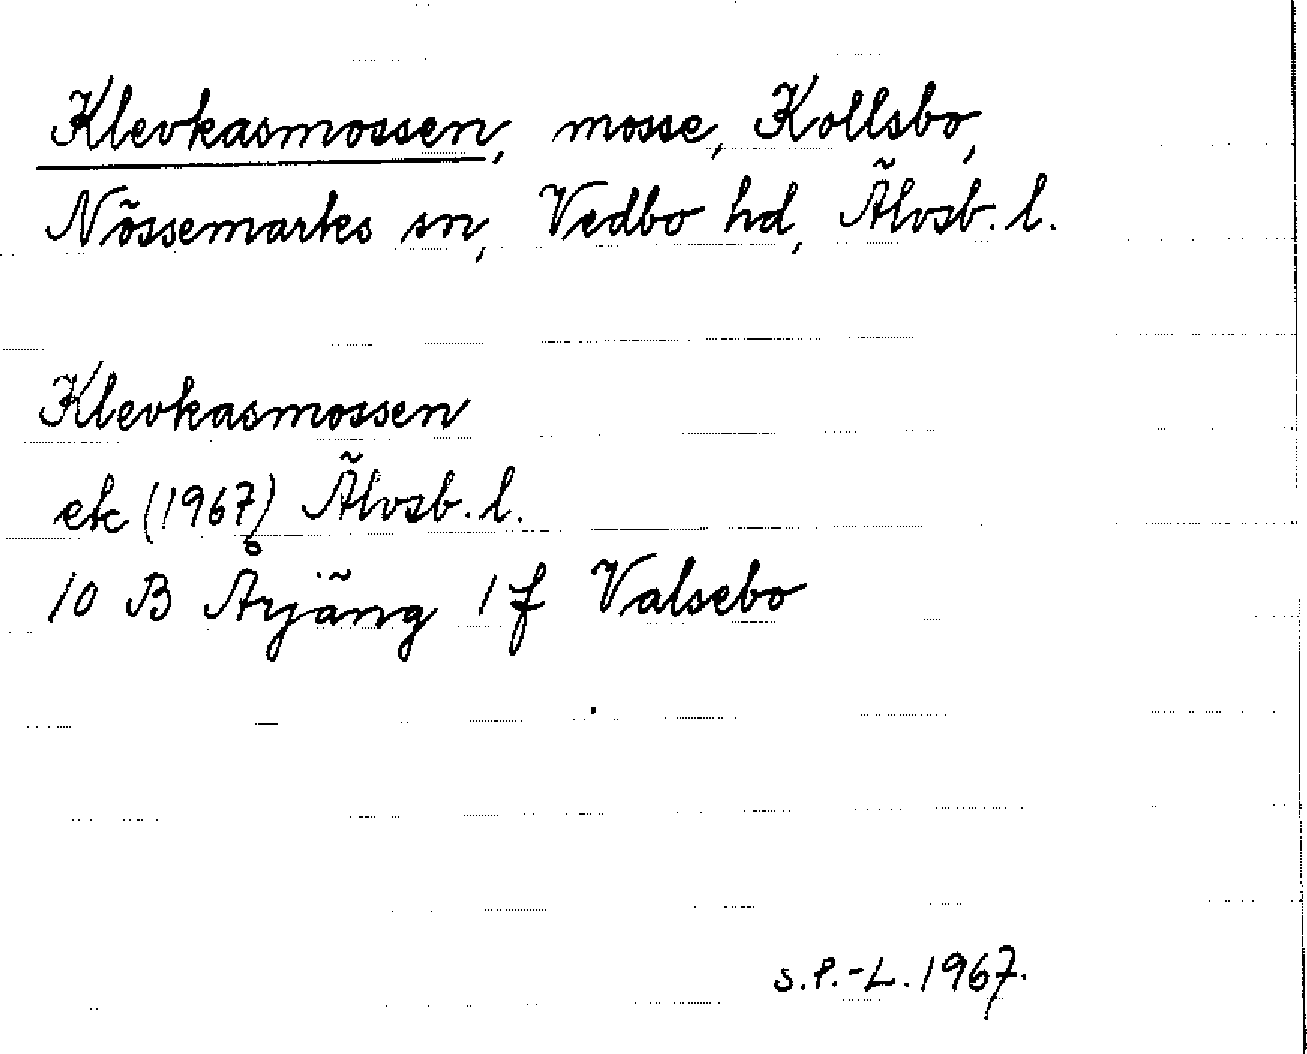 Klevkasmossen, mosse, Kollsbo,
Nössemarks sn, Vedbo hd, Älvsb. l.
Klevkasmossen
ek (1967) Älvsb. l.
10 B Årjäng 1 f Valsebo
S.P.-L. 1967.